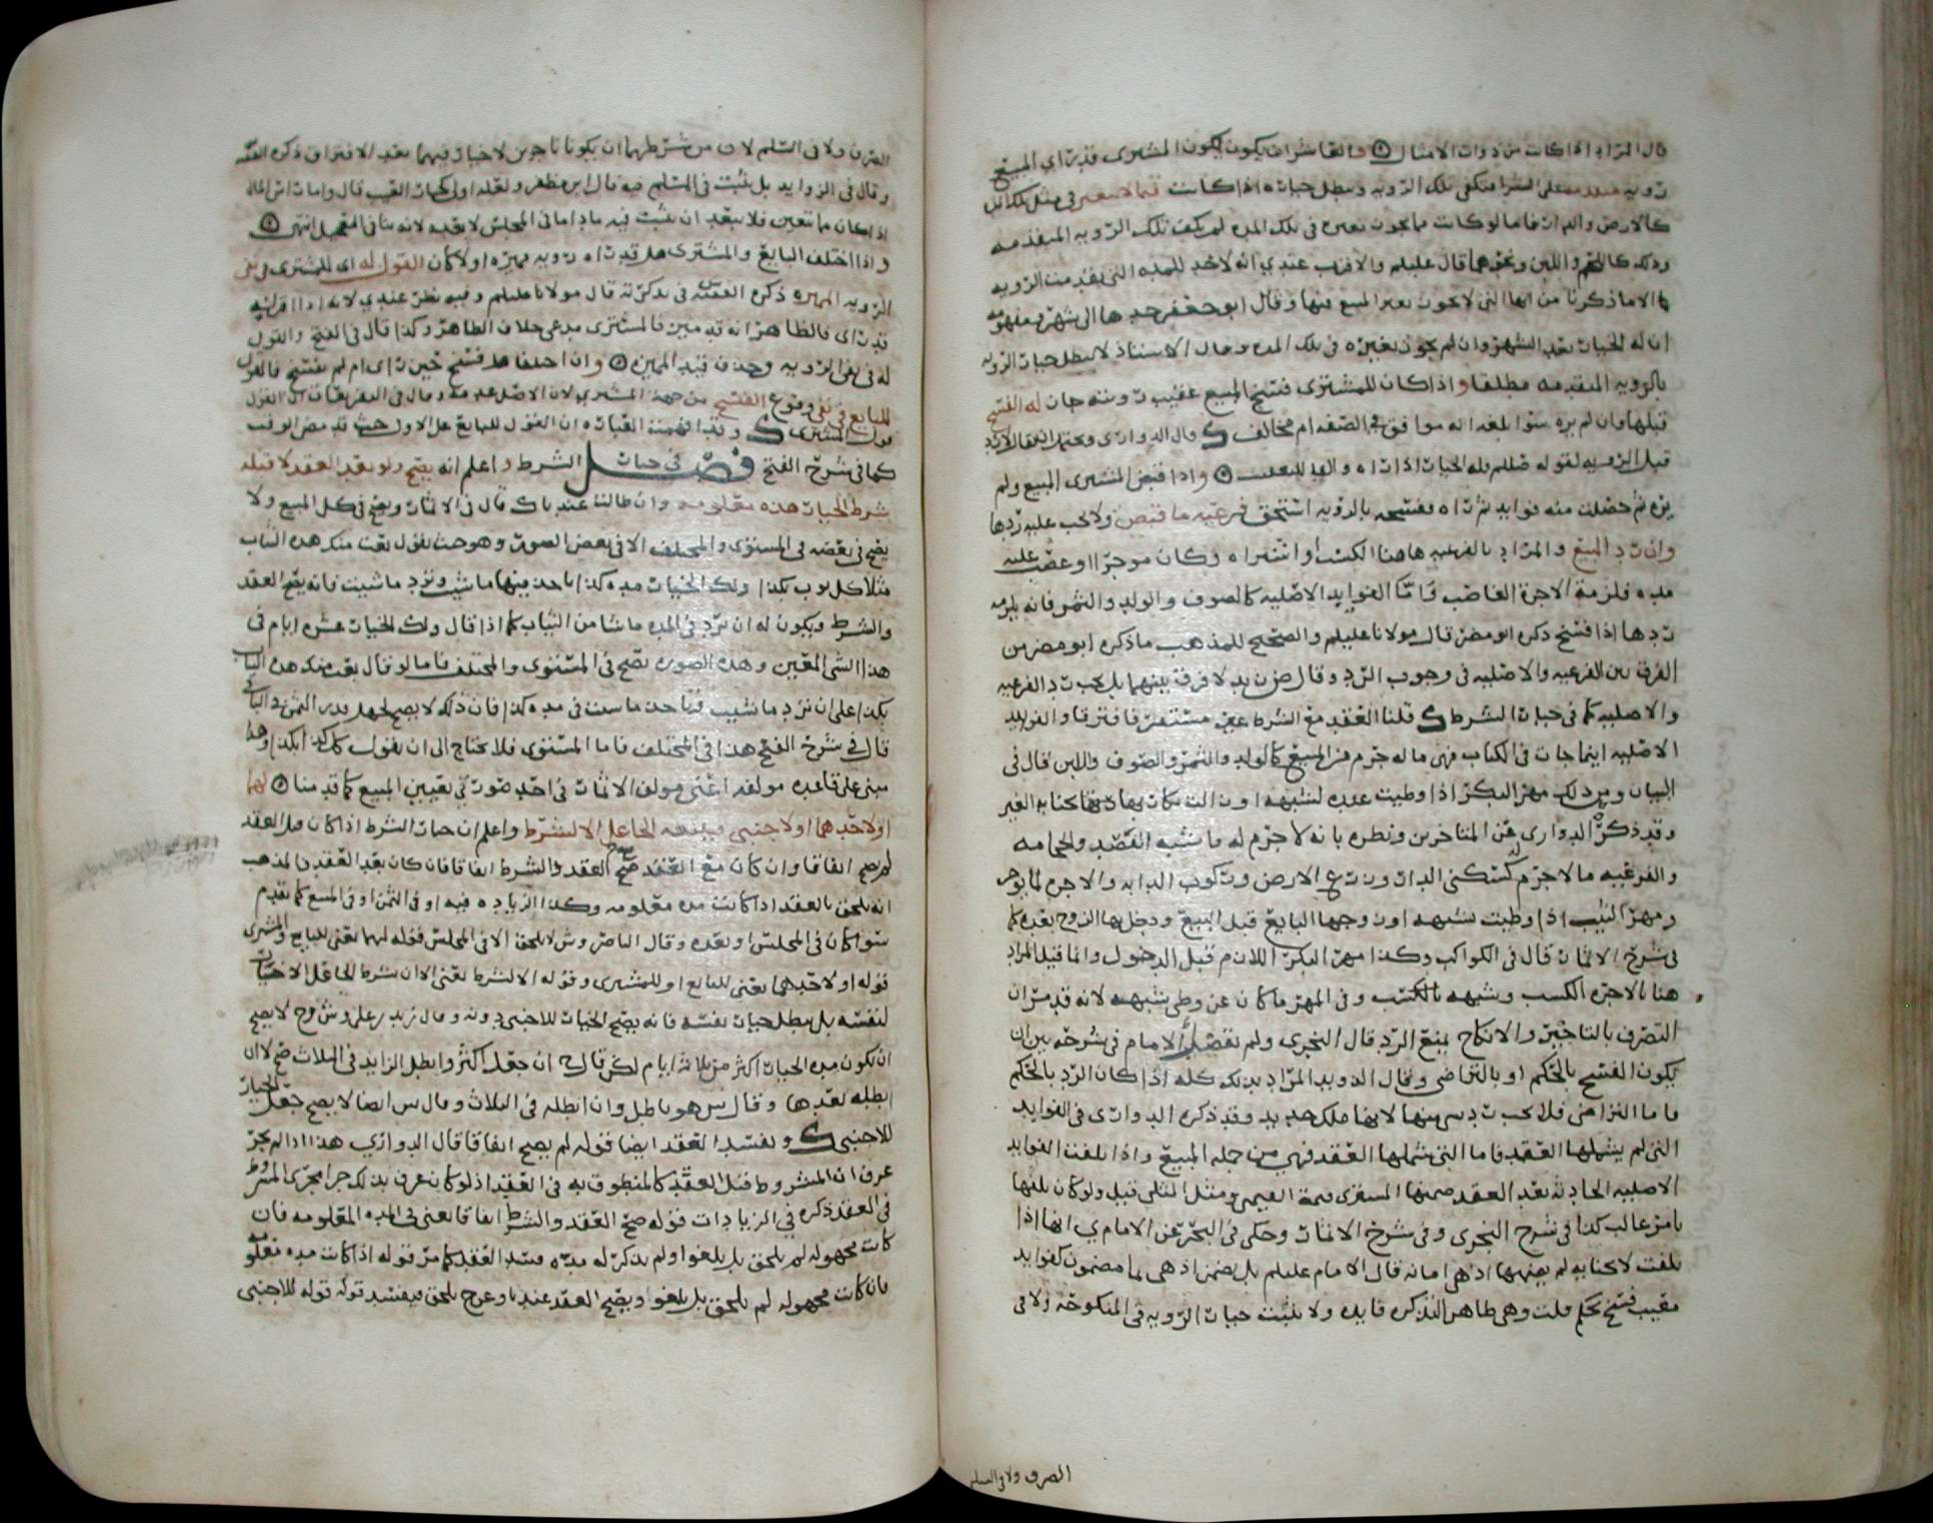 قال المراد اذا كانت من ذوات الامثال والعاشر ان يكون المشترى قد راى المبيع
رويه على الشرا فتكفى تلك الرويه وتبطل خياره اذا كانت فيما لا يتغير فى مثل تلك
كالارض والدار فاما لو كانت مما يجوز تغيره فى تلك المده لم تكف تلك الرويه المتقدمه
وذلك كاللحم واللبن ونحوهما قال عليلم والاقرب عندي انه لا حد للمده التى بعد من الرويه
الا ما ذكرنا من انها التى لا يجوز تغير المبيع فيها وقال ابو جعفر حدها الى شهر
ان له الخيار بعد الشهر وان لم يجوز تغييره فى تلك المده وقال الاستاذ لا يبطل خيار الرويه
بالرويه المتقدمه مطلقا واذا كان للمشترى فسخ المبيع عقيب رويته جاز له الفسخ
قبلها وان لم يره سوا بلغه انه موافق فى الصفه ام مخالف قال الدوارى
قبل الرويه لقوله صللم فله الخيار اذا راه واذا قبض المشترى المبيع ولم
يره ثم حصلت منه فوايد ثم راه ففسخه بالرويه استحق فرعيه ما قبض ولا يجب عليه ردها
وان رد المبيع والمراد بالفرعيه هاهنا الكسب او اشتراه وكان موجرا او غصب عليه
مده فلزمه الاجرة الغاصب فاما الفوايد الاصليه كالصوف والولد والثمر فانه يلزمه
ردها اذا فسخ ذكره ابو مضر قال مولانا عليلم والصحيح للمذهب ما ذكره ابو مضر من
الفرق بين الفرعيه والاصليه فى وجوب الرد وقال ض زيد لا فرق بينهما بل يجب رد الفرعيه
والاصليه كما فى خيار الشرط قلنا العقد مع الشرط غير مستقر فافترقا والفوايد
الاصليه اينما جات فى الكتاب فهى ما له جرم من المبيع كالولد والثمر والصوف واللبن قال فى
البيان ومن ذلك مهر البكر اذا وطيت عنده لشبهه او زالت بكارتها بجنايه الغير
وقد ذكره الدوارى عن المتاخرين ونظره بانه لا جرم له ما شبه الفصد والحجامه
والفرعيه ما لا جرم له كسكنى الدار وزرع الارض وركوب الدابه والاجره لما يوجر
ومهر الثيب اذا وطيت لشبهه او زوجها البايع قبل البيع ودخل بها الزوج بعده كما
فى شرح الاثمار قال فى الكواكب وكذا مهر البكر اللازم قبل الدخول وانما قيل المراد
هنا بالاجره الكسب وشبهه بالكسب وفى المهر ما كان عن وطى بشبهه لانه قد مر ان
التصرف بالتاجير والانكاح يمنع الرد قال النجرى ولم يفصل الامام فى شرحه بين ان
يكون الفسخ بالحكم او بالتراضى وقال الدويد المراد بذلك كله اذا كان الرد بالحكم
فاما التراضى فلا يجب رد شى منها لانها ملك جديد وقد ذكره الدوارى فى الفوايد
التى لم يشملها العقد فاما التى شملها العقد فهى من جمله المبيع واذا تلفت الفوايد
الاصليه الحادثه بعد العقد ضمنها المشترى قيمة القيمى ومثل المثلى قيل ولو كان تلفها
بامر غالب كذا فى شرح النجرى وفى شرح الاثمار وحكى فى البحر عن الامام ي انها اذا
تلفت لا بجنايه لم يضمنها اذ هى امانه قال الامام عليلم بل يضمن اذ هى مما مضمون كفوايد
معيب فسخ بحكم قلت وهى ظاهر التذكره فايده ولا يثبت خيار الرويه فى المنكوحه ولا فى
الصرف ولا فى السلم
الصرف ولا فى السلم لان من شرطهما ان يكونا ناجزين لا خيار فيهما بعد الافتراق ذكره الفقيه
وقال فى الزوايد بل يثبت فى المسلم فيه قال ابن مظفر ولعله اولى كخيار العيب قال واما راس المال
اذا كان مما يتعين فلا يبعد ان يثبت فيه ما داما فى المجلس لا بعده لانه ينافى التعجيل انتهى
واذا اختلف البايع والمشترى هل قد راه رويه مميزه اولا كان القول له اى للمشترى فى نفى
الرويه المميزه ذكره الفقيه س فى تذكرته قال مولانا عليلم وفيه نظر عندي لانه اذا اقر انه
قد راى فالظاهر انه قد ميز فالمشترى مدعى خلاف الظاهر وكذا قال فى الفتح والقول
له فى نفى الرويه وحذف قيد المميزه وان اختلفا هل فسخ حين راى ام لم يفسخ فالقول
للبايع فى نفى وقوع الفسخ من جهة المشترى لان الاصل عدمه وقال فى التفريعات ان القول
قول المشترى وقد افهمت العباره ان القول للبايع على الاول حيث قد مضى الوقت
كما فى شرح الفتح فصل فى خيار الشرط واعلم انه يصح ولو بعد العقد لا قبله
شرط الخيار مده معلومه وان طالت عندنا ك قال فى الاثمار ويصح فى كل المبيع ولا
يصح فى بعضه فى المستوى والمختلف الا فى بعض الصور وهو حيث يقول بعت منك هذه الثياب
مثلا كل ثوب بكذا ولك الخيار مده كذا تاخذ فيها ما شيت وترد ما شيت فانه يصح العقد
والشرط ويكون له ان يرد فى المده ما شا من الثياب كما اذا قال ولك الخيار عشره ايام فى
هذا الشى المعين وهذه الصوره تصح فى المستوى والمختلف فاما لو قال بعت منك هذه الثياب
بكذا على ان ترد ما شيت وتاخذ ما شيت فى مده كذا فان ذلك لا يصح لجهل قدر الثمن
قال فى شرح الفتح هذا فى المختلف فاما المستوى فلا يحتاج الى ان يقول كل كذا بكذا وهذا
مبنى على قاعده مولفه اعنى مولف الاثمار فى احد صورتى تعيين المبيع كما قدمنا لهما
او لاحدهما او لاجنبى ويتبعه الجاعل الا لشرط واعلم ان خيار الشرط اذا كان قبل العقد
لم يصح اتفاقا وان كان مع العقد صح العقد والشرط اتفاقا فان كان بعد العقد فالمذهب
انه يلحق بالعقد اذا كانت مده معلومه وكذا الزياده فيه او فى الثمن او فى المبيع كما تقدم
سوا كان فى المجلس او بعده وقال الناصر وش لا يلحق الا فى المجلس فقوله لهما يعنى للبايع والمشترى
قوله او لاحدهما يعنى للبايع او للمشترى وقوله الا لشرط يعنى الا ان يشرط الجاعل الا خيار
لنفسه بل يبطل خيار نفسه فانه يصح الخيار للاجنبى دونه وقال زيد بن على وش وح لا يصح
ان تكون مده الخيار اكثر من ثلاثه ايام لكن قال ح ان جعل اكثر وابطل الزايد فى الثلاث صح لا ان
ابطله بعدها وقال ش هو باطل وان ابطله فى الثلاث وقال ش ايضا لا يصح جعل الخيار
للاجنبى ك ويفسد العقد ايضا قوله لم يصح اتفاقا قال الدوارى هذا اذا لم يجر
عرف ان المشروط قبل العقد كالمنطوق به فى العقد اذ لو كان عرف بذلك جرا مجرى المشروط
فى العقد ذكره فى الزيادات قوله صح العقد والشرط اتفاقا يعنى فى المده المعلومه فان
كانت مجهوله لم يلحق بل يلغوا ولم يذكر له مده فسد العقد كما مر قوله اذا كانت مده معلومه
فان كانت مجهوله لم يلحق بل يلغو ويصح العقد عندنا وعن ح يلحق فيفسد قوله قوله للاجنبى